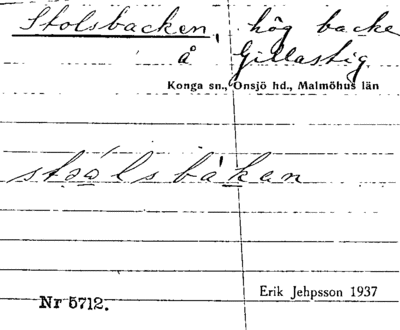 Stolsbacken, hög backe
å Gillastig.
Konga sn., Onsjö hd., Malmöhus län
stoålsbàkan
Erik Jehpsson 1937
Nr 5712.